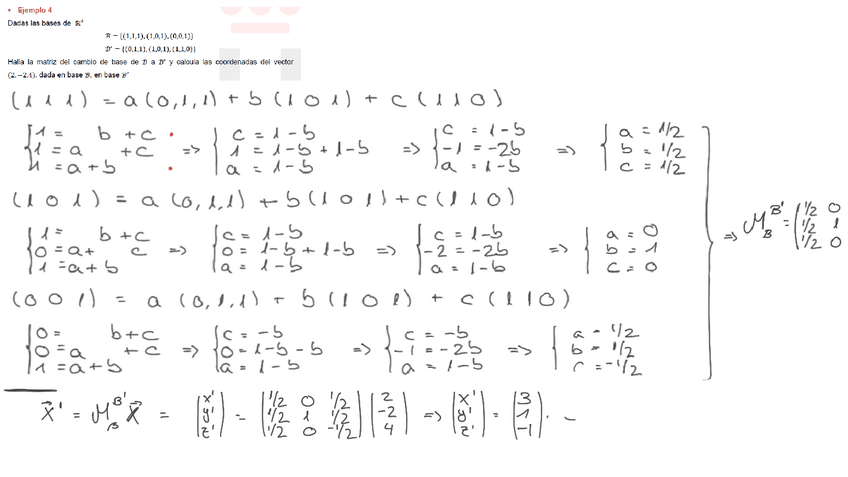 • Ejemplo 4
Dadas las bases de ℝ³
B = {(1,1,1),(1,0,1),(0,0,1)}
B' = {(0,1,1),(1,0,1),(1,1,0)}
Halla la matriz del cambio de base de B a B' y calcula las coordenadas del vector
(2,−2,4), dada en base B, en base B'
(1 1 1) = a(0,1,1) + b(1 0 1) + c(1 1 0)
{1 = b + c => {c = 1-b => {c = 1-b => {a = 1/2
1 = a + c 1 = 1-b+1-b -1 = -2b b = 1/2
1 = a + b a = 1-b a = 1-b c = 1/2
(1 0 1) = a(0,1,1) + b(1 0 1) + c(1 1 0)
{1 = b + c => {c = 1-b => {c = 1-b => {a = 0
0 = a + c 0 = 1-b+1-b -2 = -2b b = 1
1 = a + b a = 1-b a = 1-b c = 0
=> M_B^B' = (1/2 0
1/2 1
1/2 0
(0 0 1) = a(0,1,1) + b(1 0 1) + c(1 1 0)
{0 = b + c => {c = -b => {c = -b => {a = 1/2
0 = a + c 0 = 1-b-b -1 = -2b b = 1/2
1 = a + b a = 1-b a = 1-b c = -1/2
x⃗' = M_B^B' x⃗ = (x' y' z') = (1/2 0 1/2 1/2 1 1/2 1/2 0 -1/2)(2 -2 4) => (x' y' z') = (3 1 -1).